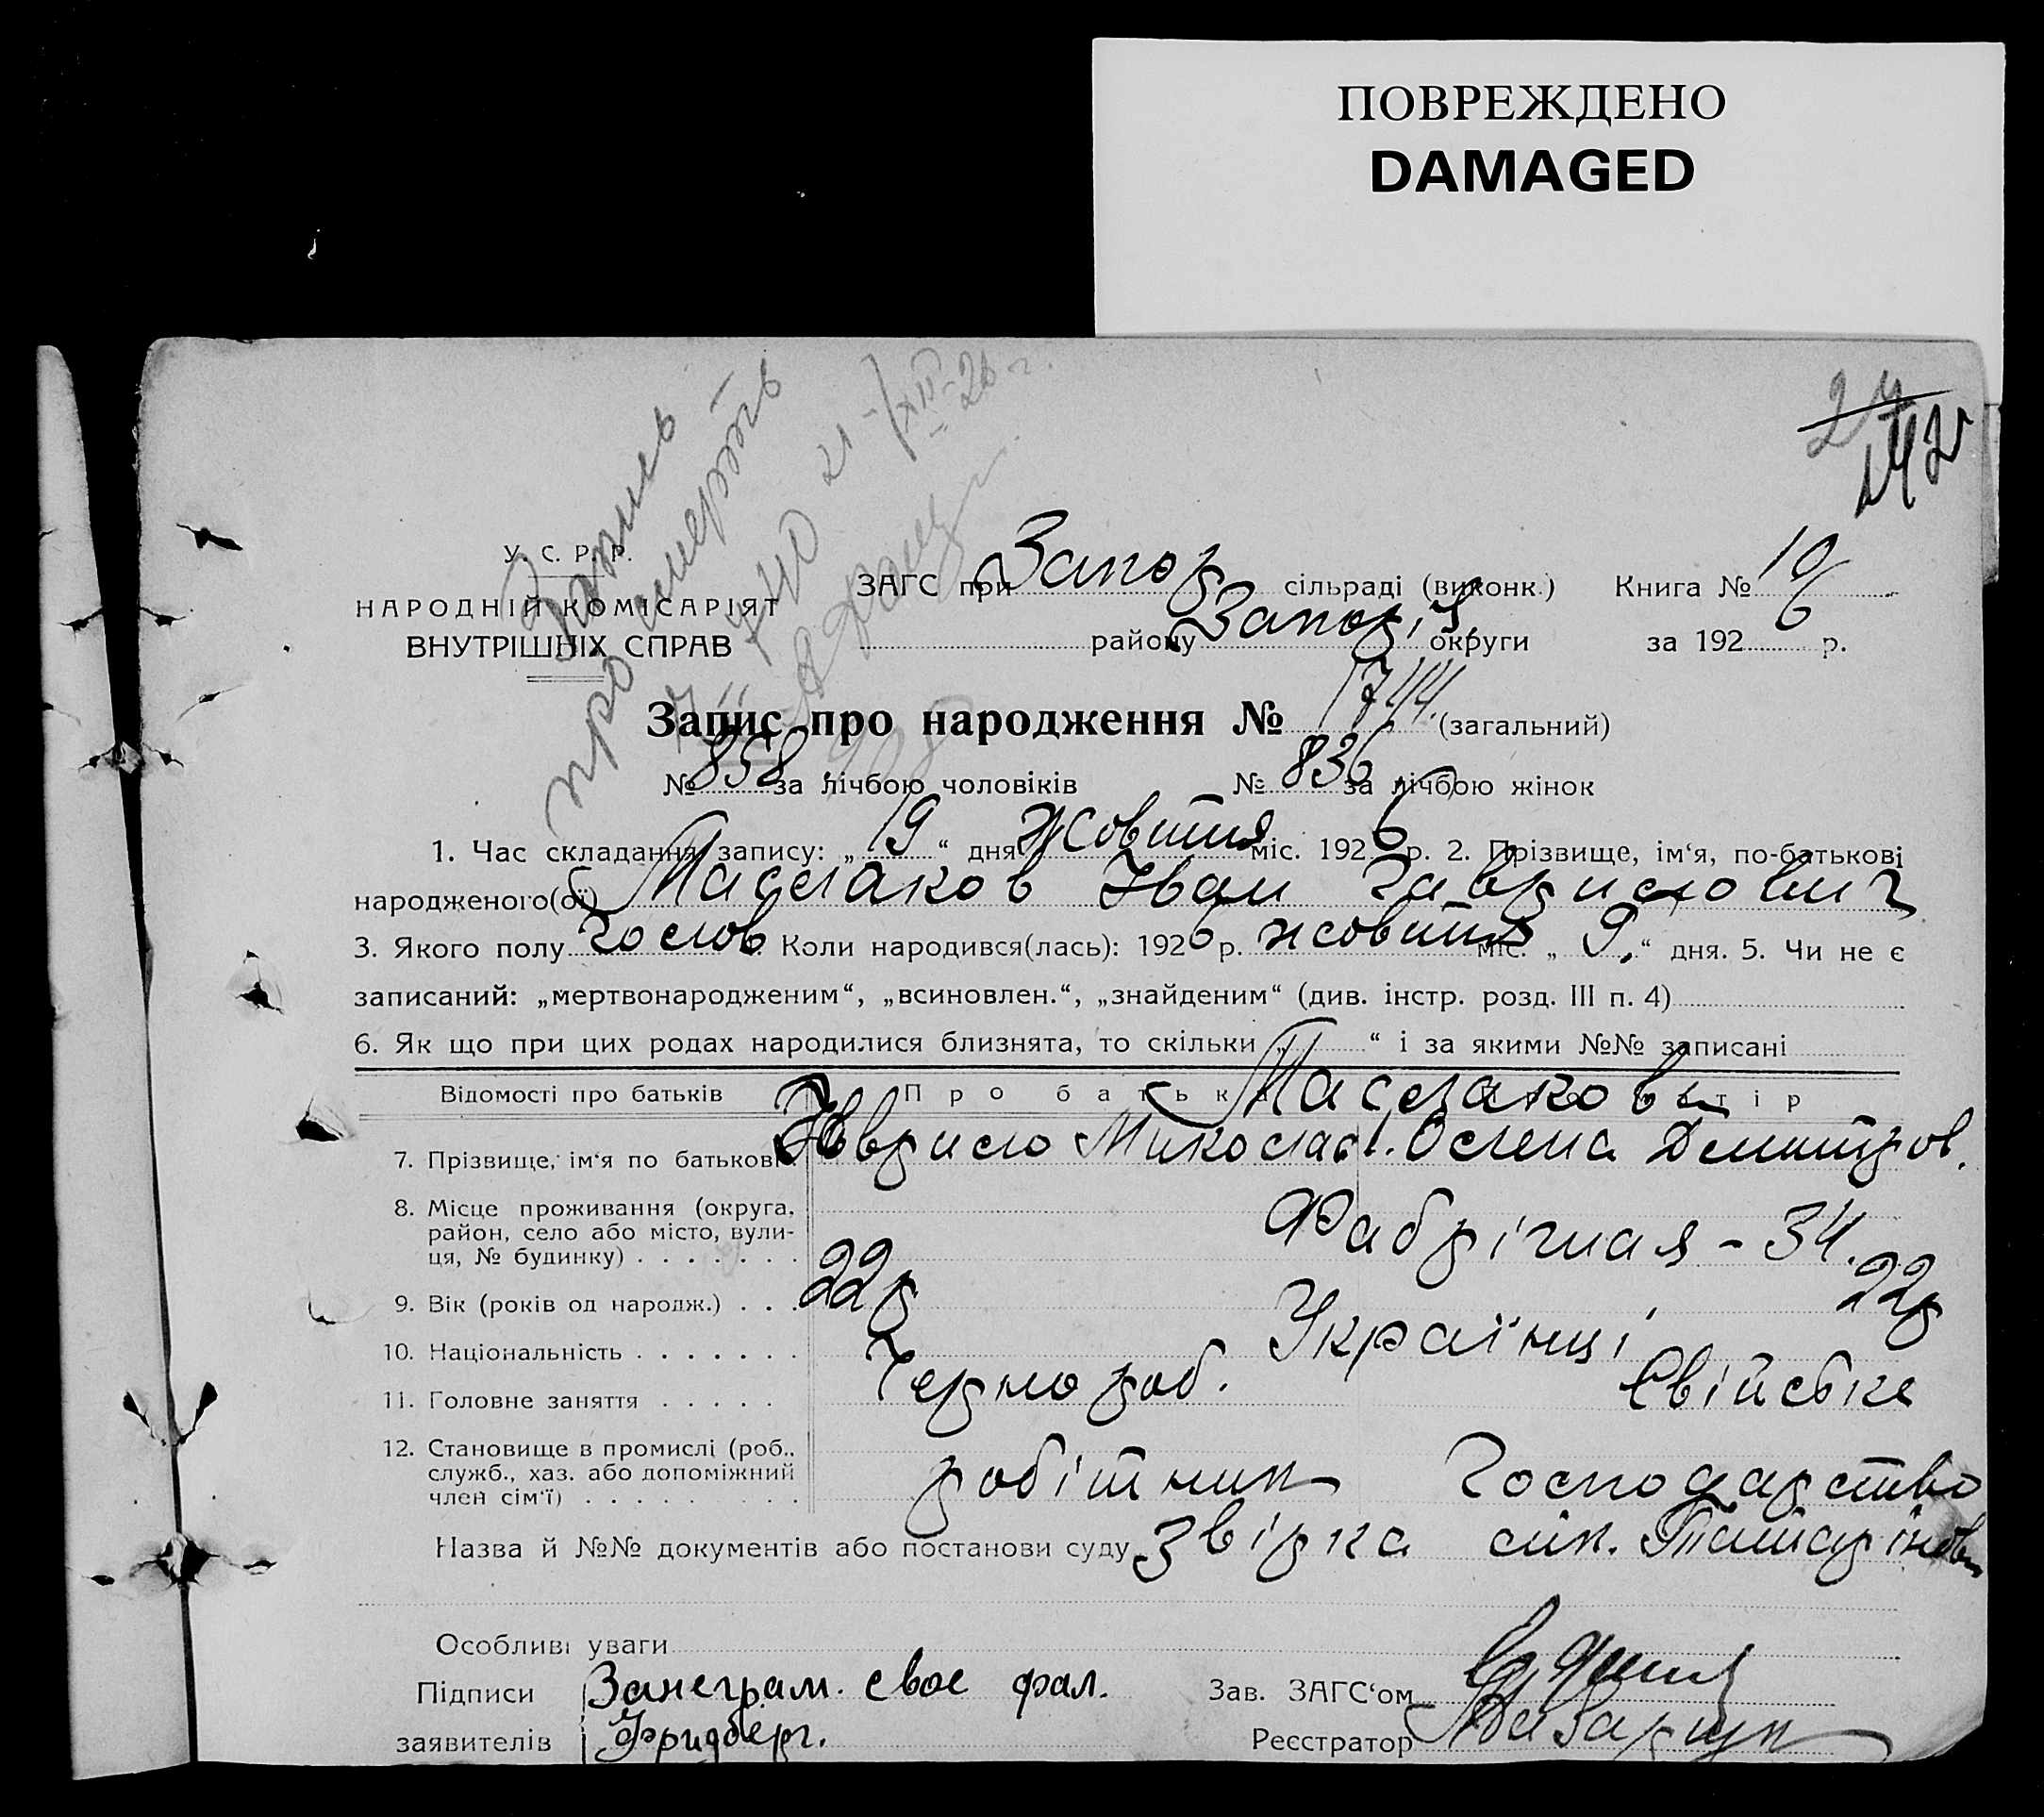 ПОВРЕЖДЕНО
DAMAGED
24
142
Запись
про смерть
740 21-/XII-26 г.
У. С. Р. Р.
НАРОДНІЙ КОМІСАРІЯТ
ВНУТРІШНІХ СПРАВ
ЗАГС при Запор сільраді (виконк.) Книга № 10
району Запоріз. округи за 1926 р.
Запис про народження № 1744. (загальний)
№ 858 за лічбою чоловіків № 836 за лічбою жінок
1. Час складання запису: „19“ дня Жовтня міс. 1926 р. 2. Прізвище, ім‘я, по-батькові
народженого(ої) Маслаков Іван Гаврилович
3. Якого полу чолов. Коли народився(лась): 1926 р. жовтня міс. „9.“ дня. 5. Чи не є
записаний: „мертвонародженим“, „всиновлен.“, „знайденим“ (див. інстр. розд. III п. 4)
6. Як що при цих родах народилися близнята, то скільки „ “ і за якими №№ записані
Відомості про батьків Про батька тір
Маслаковы
7. Прізвище, ім‘я по батькові Гаврило Миколаєв. Олена Дмитров.
8. Місце проживання (округа,
район, село або місто, вули-
ця, № будинку) . . . . . . . Фабрічная - 34.
9. Вік (років од народж.) . . . 22 р 22 р
10. Національність . . . . . . . Українці
11. Головне заняття . . . . . Чернороб. Свійське
12. Становище в промислі (роб.,
служб., хаз. або допоміжний
член сім‘ї) . . . . . . . . . робітник Господарство
Назва й №№ документів або постанови суду Звірка
Особливі уваги
Підписи Занеграм. свое фал. Зав. ЗАГС‘ом
заявителів Фридберг. Реєстратор